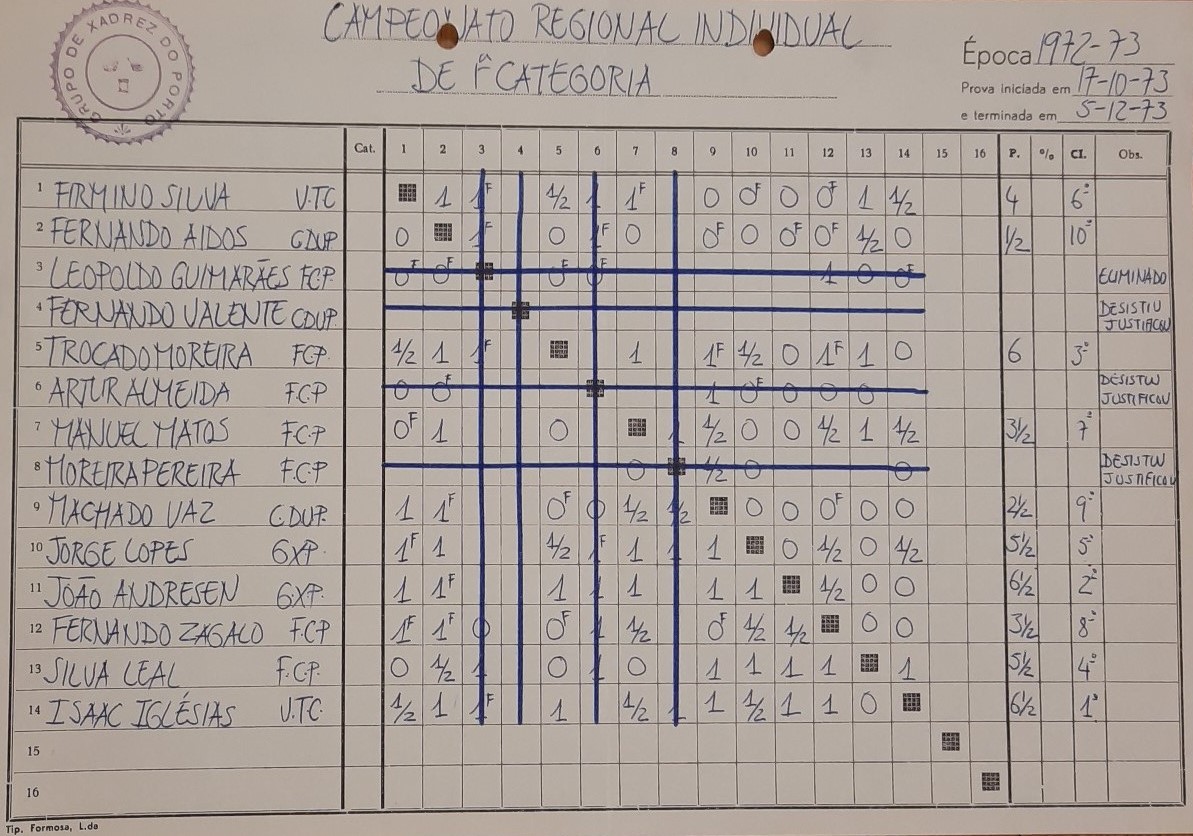 CAMPEONATO REGIONAL INDIVIDUAL
DE 1ª CATEGORIA
GRUPO DE XADREZ DO PORTO
Época 1972-73
Prova iniciada em 17-10-73
e terminada em 5-12-73
Cat. 1 2 3 4 5 6 7 8 9 10 11 12 13 14 15 16 P. % Cl. Obs.
1 FIRMINO SILVA V.TC 1 1F ½ 1 1F 0 0F 0 0F 1 ½ 4 6º
2 FERNANDO AIDOS CDUP 0 1F 0 1F 0 0F 0 0F 0F ½ 0 ½ 10º
3 LEOPOLDO GUIMARÃES FCP 0F 0F 0F 0F 1 0 0F ELIMINADO
4 FERNANDO VALENTE CDUP. DESISTIU JUSTIFICOU
5 TROCADO MOREIRA FCP. ½ 1 1F 1 1F ½ 0 1F 1 0 6 3º
6 ARTUR ALMEIDA F.C.P 0 0F 1 0F 0 0 0 DESISTIU JUSTIFICOU
7 MANUEL MATOS F.C.P 0F 1 0 1 ½ 0 0 ½ 1 ½ 3½ 7º
8 MOREIRA PEREIRA F.C.P 0 ½ 0 0 DESISTIU JUSTIFICOU
9 MACHADO VAZ CDUP. 1 1F 0F 0 ½ ½ 0 0 0F 0 0 2½ 9º
10 JORGE LOPES GXP. 1F 1 ½ 1F 1 1 1 0 ½ 0 ½ 5½ 5º
11 JOÃO ANDRESEN GXP. 1 1F 1 1 1 1 1 ½ 0 0 6½ 2º
12 FERNANDO ZAGALO F.CP 1F 1F 0 0F 1 ½ 0F ½ ½ 0 0 3½ 8º
13 SILVA LEAL F.C.P. 0 ½ 1 0 1 0 1 1 1 1 1 5½ 4º
14 ISAAC IGLÉSIAS V.TC. ½ 1 1F 1 ½ 1 1 ½ 1 1 0 6½ 1º
15
16
Tip. Formosa, L.da